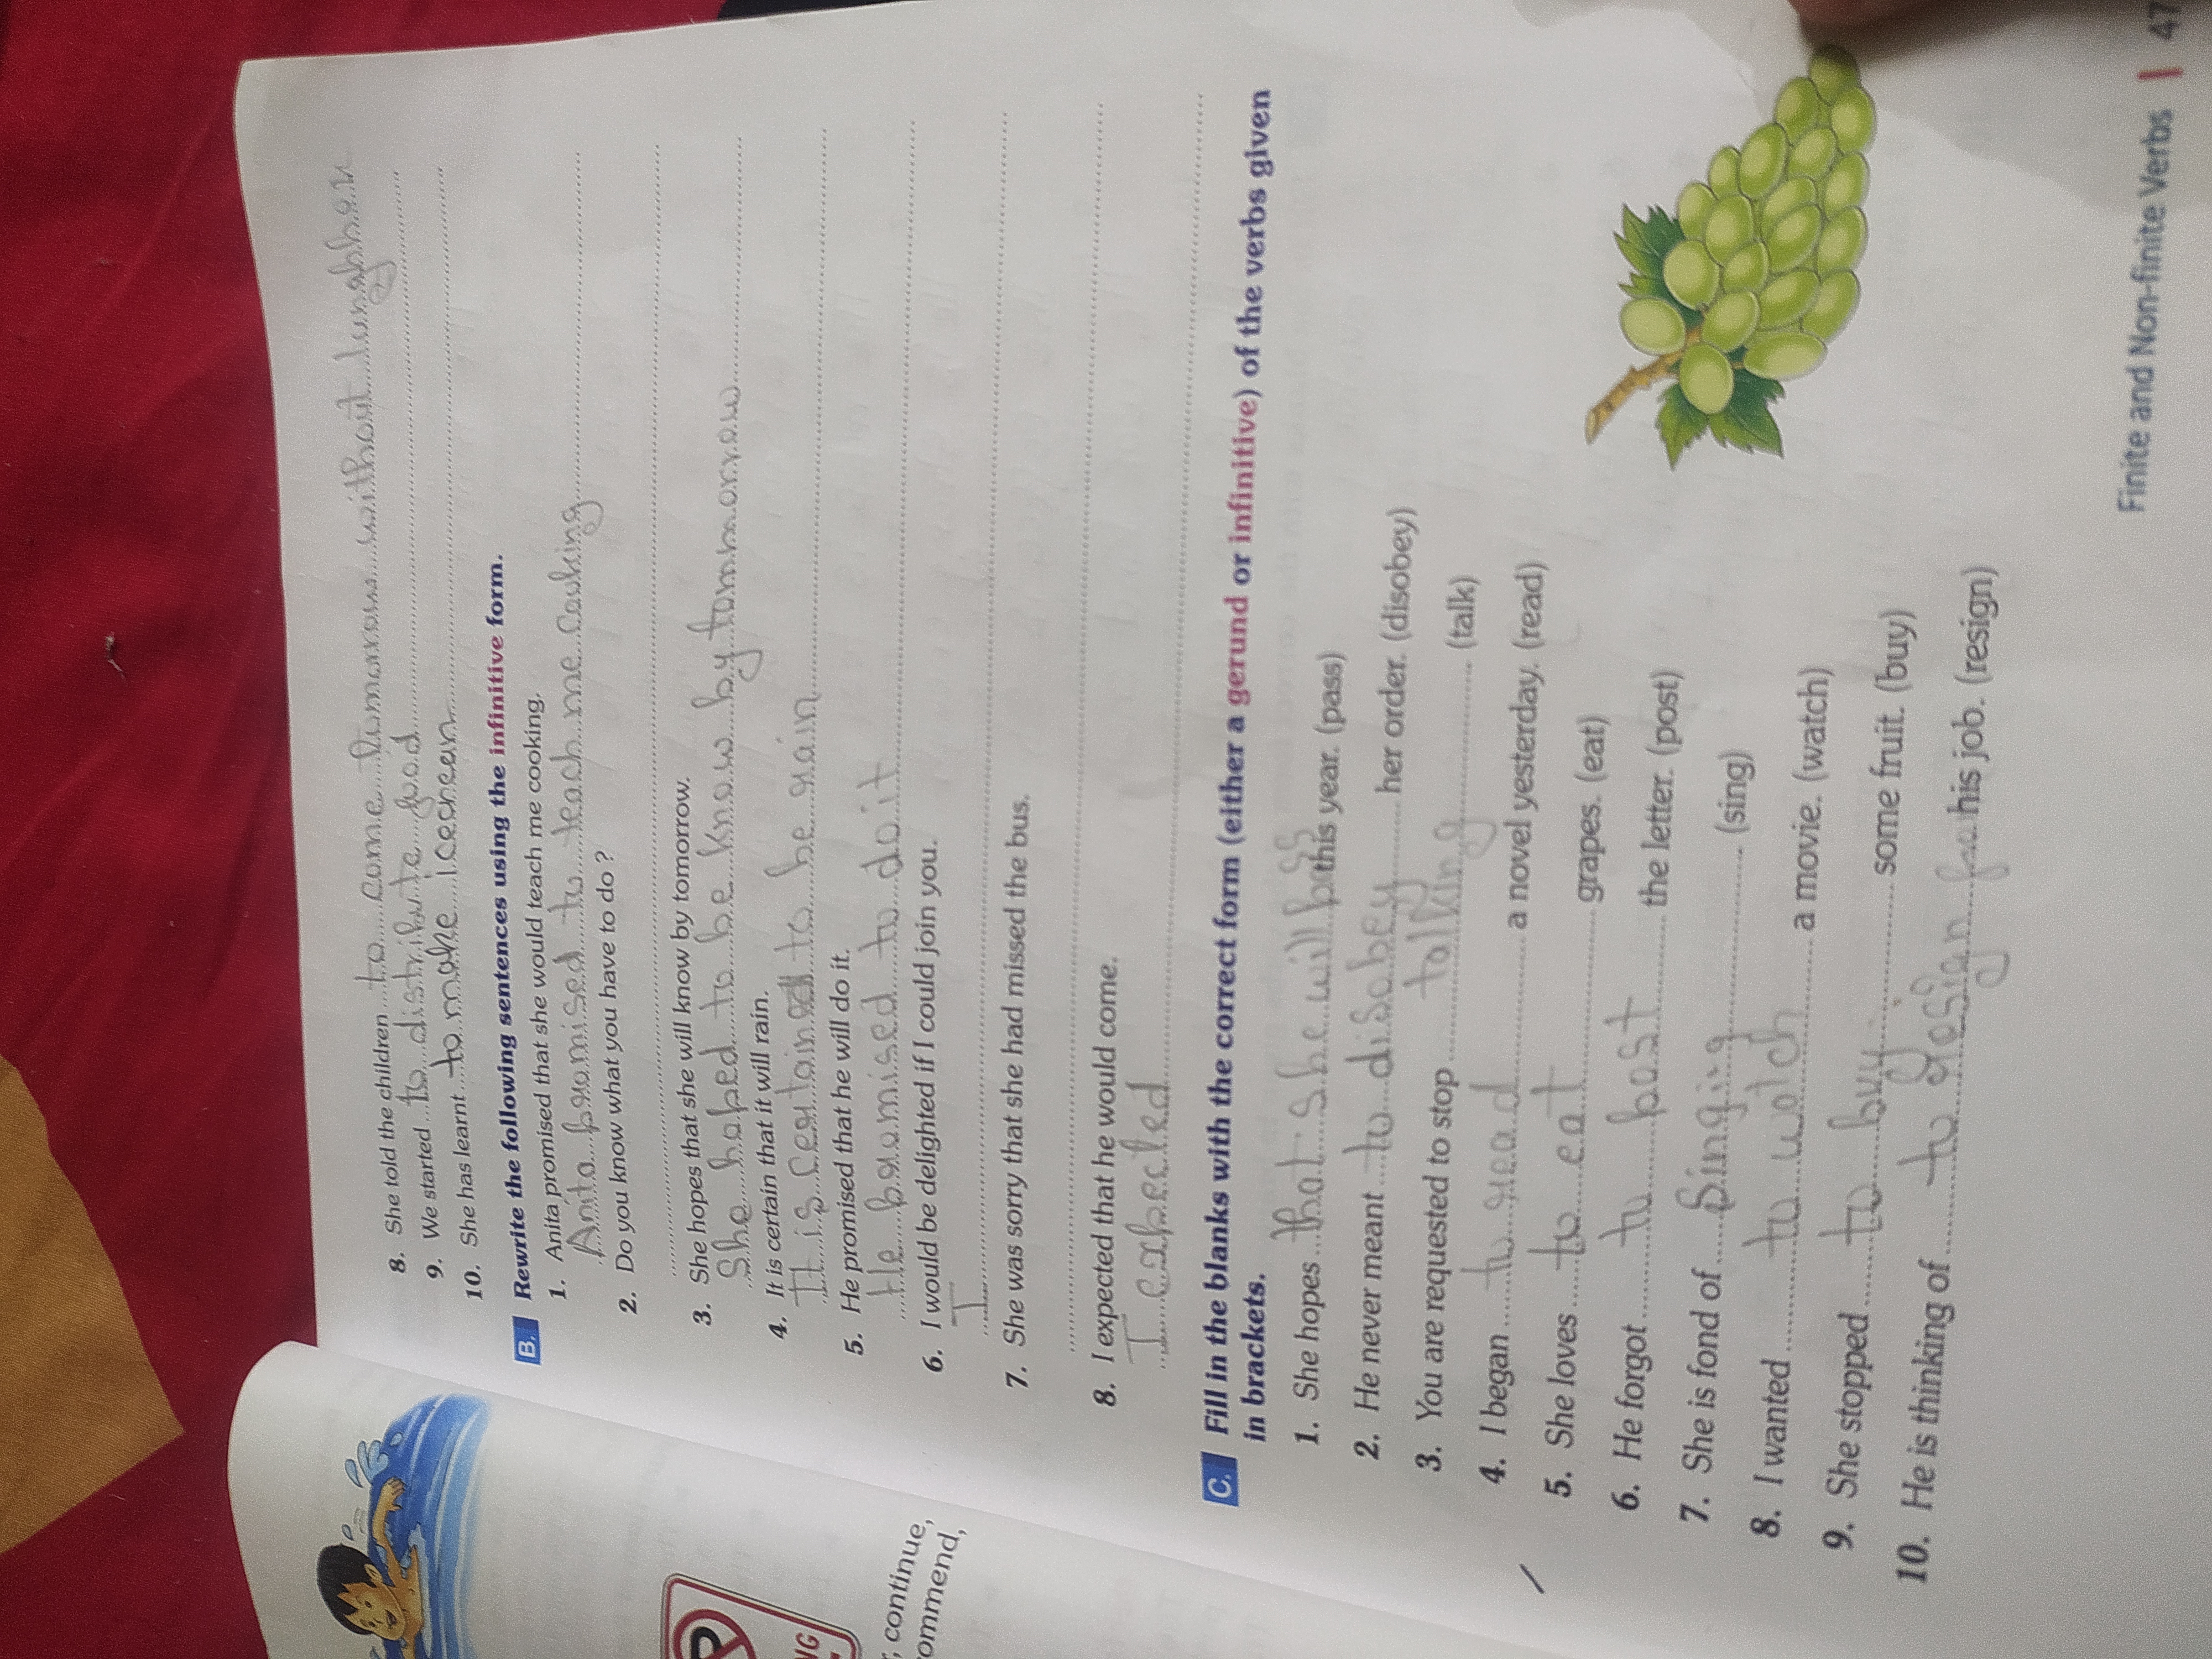 8. She told the children to come tomorrow without
9. We started to distribute food
10. She has learnt to make icecream
B. Rewrite the following sentences using the infinitive form.
1. Anita promised that she would teach me cooking.
Anita promised to teach me cooking
2. Do you know what you have to do ?
3. She hopes that she will know by tomorrow.
She hoped to be know by tommorrow
4. It is certain that it will rain.
It is certain to be rain
5. He promised that he will do it.
He promised to do it
6. I would be delighted if I could join you.
I
7. She was sorry that she had missed the bus.
8. I expected that he would come.
I expected
C. Fill in the blanks with the correct form (either a gerund or infinitive) of the verbs given
in brackets.
1. She hopes that she will pass this year. (pass)
2. He never meant to disobey her order. (disobey)
3. You are requested to stop talking (talk)
4. I began to read a novel yesterday. (read)
5. She loves to eat grapes. (eat)
6. He forgot to post the letter. (post)
7. She is fond of Singing (sing)
8. I wanted to watch a movie. (watch)
9. She stopped to buy some fruit. (buy)
10. He is thinking of to resign his job. (resign)
NG
continue,
ommend,
Finite and Non-finite Verbs | 47